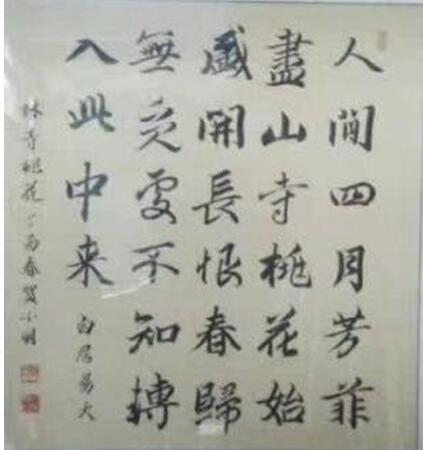 人間四月芳菲
盡山寺桃花始
盛開長恨春歸
無覓處不知轉
入此中来 白居易大
林寺桃花 丁酉春